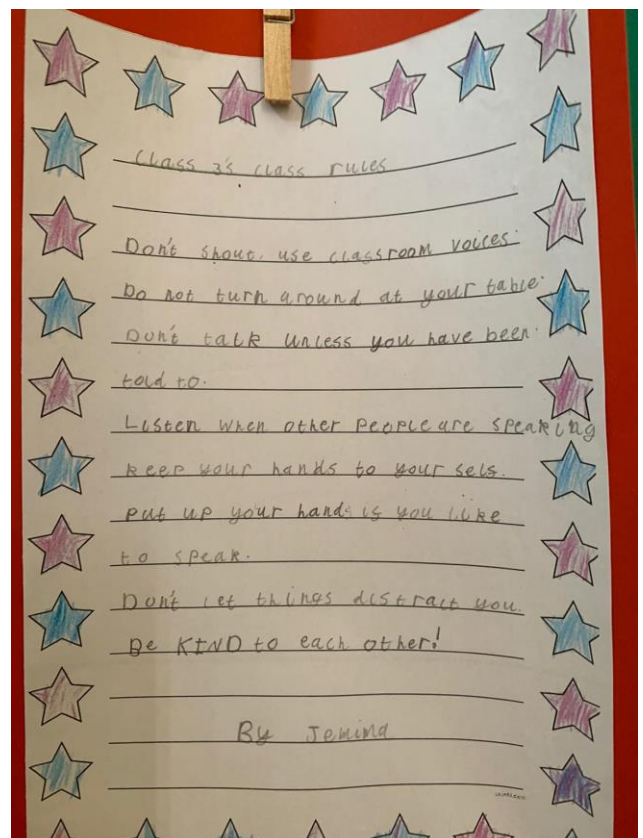 Class 3's class rules
Don't shout, use classroom voices.
Do not turn around at your table.
Don't talk unless you have been.
told to.
Listen when other people are speaking
keep your hands to your sels.
Put up your hands is you like
to speak.
Don't let things distract you.
Be KIND to each other!
By Jemima